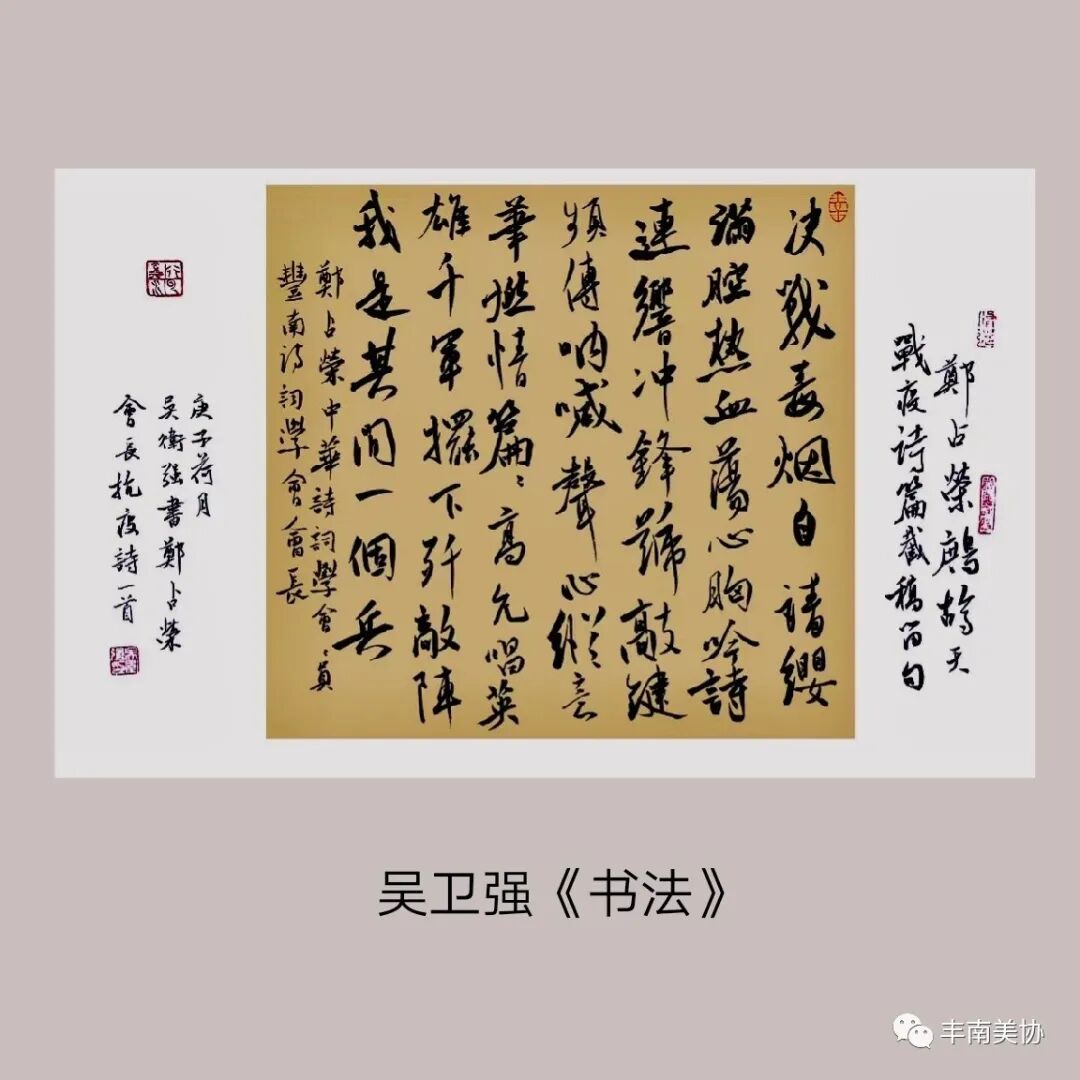 鄭占榮鷓鴣天
戰疫诗篇截稿留句
决戰毒烟自請纓
滿腔热血蕩心胸吟詩
連響冲鋒號敲鍵
頻傳呐喊聲心縱言
華燃情篇〻高亢唱英
雄千軍擺下歼敵陣
我是其間一個兵
鄭占榮中華詩詞學會〻員
豐南诗詞學會會長
庚子荷月
吴衛强書鄭占榮
會長抗疫詩一首
吴卫强《书法》
丰南美协